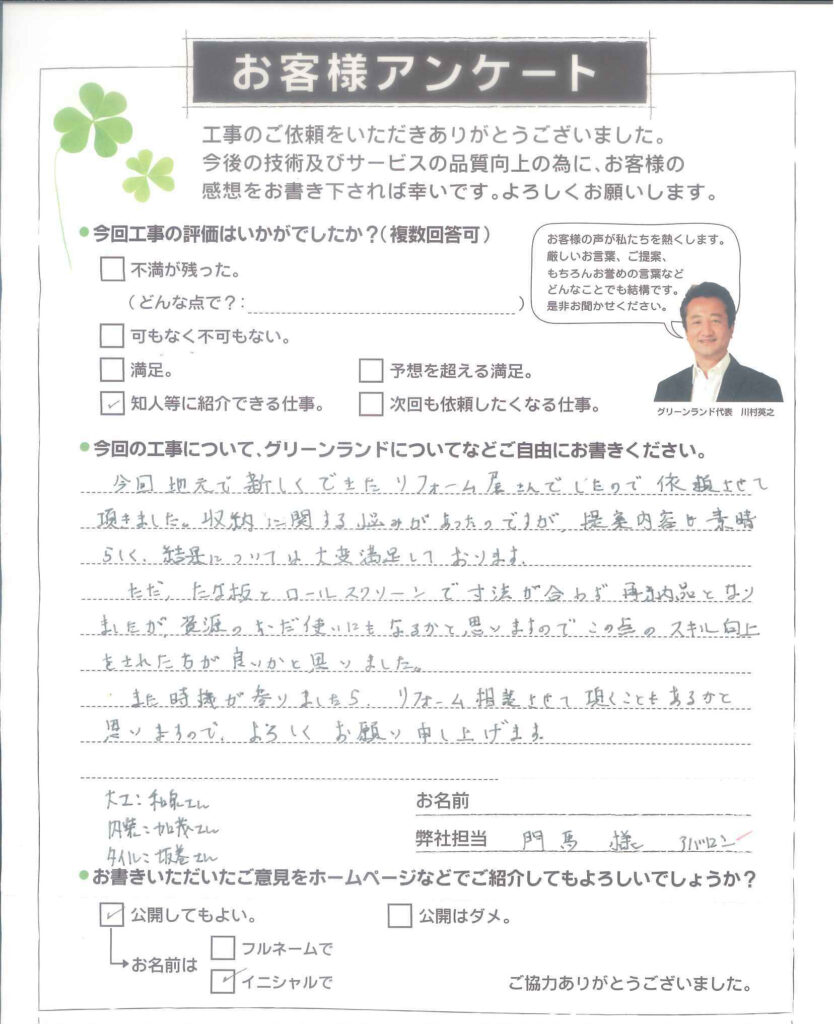 お客様アンケート
工事のご依頼をいただきありがとうございました。
今後の技術及びサービスの品質向上の為に、お客様の
感想をお書き下されば幸いです。よろしくお願いします。
今回工事の評価はいかがでしたか？(複数回答可)
不満が残った。
(どんな点で？: )
可もなく不可もない。
満足。
予想を超える満足。
✓ 知人等に紹介できる仕事。
次回も依頼したくなる仕事。
お客様の声が私たちを熱くします。
厳しいお言葉、ご提案、
もちろんお誉めの言葉など
どんなことでも結構です。
是非お聞かせください。
グリーンランド代表 川村英之
今回の工事について、グリーンランドについてなどご自由にお書きください。
今回地元で新しくできたリフォーム屋さんでしたので依頼させて
頂きました。収納に関する悩みがあったのですが、提案内容も素晴
らしく、結果については大変満足しております。
ただ、たな板とロールスクリーンで寸法が合わず再納品となり
ましたが、資源のむだ使いにもなるかと思いますのでこの点のスキル向上
をされた方が良いかと思いました。
また時機が参りましたら、リフォーム相談させて頂くこともあるかと
思いますので、よろしくお願い申し上げます。
大工：和泉さん
内装：加茂さん
タイル：坂巻さん
お名前
弊社担当 門馬 様
お書きいただいたご意見をホームページなどでご紹介してもよろしいでしょうか？
✓ 公開してもよい。
公開はダメ。
お名前は
フルネームで
✓ イニシャルで
ご協力ありがとうございました。